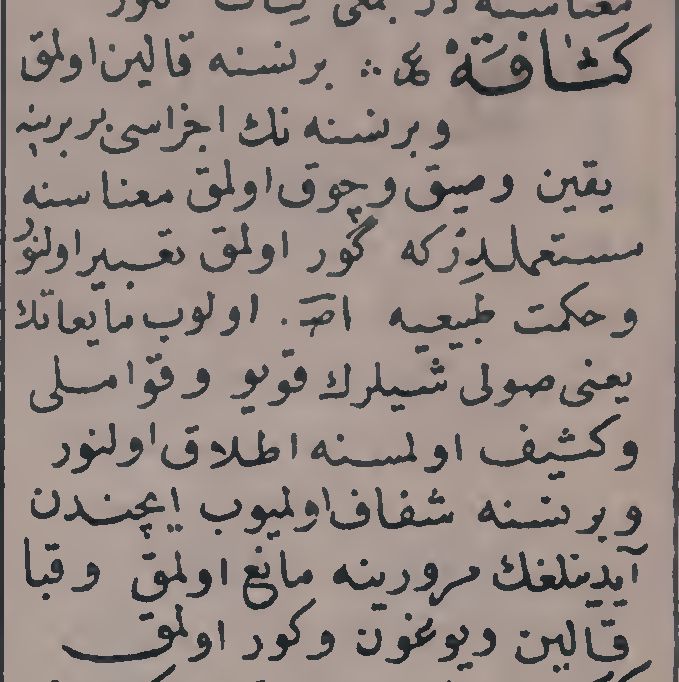 كَثَافَة ع بر نسنه قالین اولمق
و بر نسنه نك اجزاسی بربرینه
یقین و صیق و چوق اولمق معناسنه
مستعملدر که گور اولمق تعبیر اولنور
و حکمت طبیعیه اصـ. اولوب مایعاتك
یعنی صولی شیلرك قویو و قوّاملی
و کثیف اولمسنه اطلاق اولنور
و بر نسنه شفاف اولمیوب ایچندن
آیدینلغك مرورینه مانع اولمق و قبا
قالین و یوغون و کور اولمق